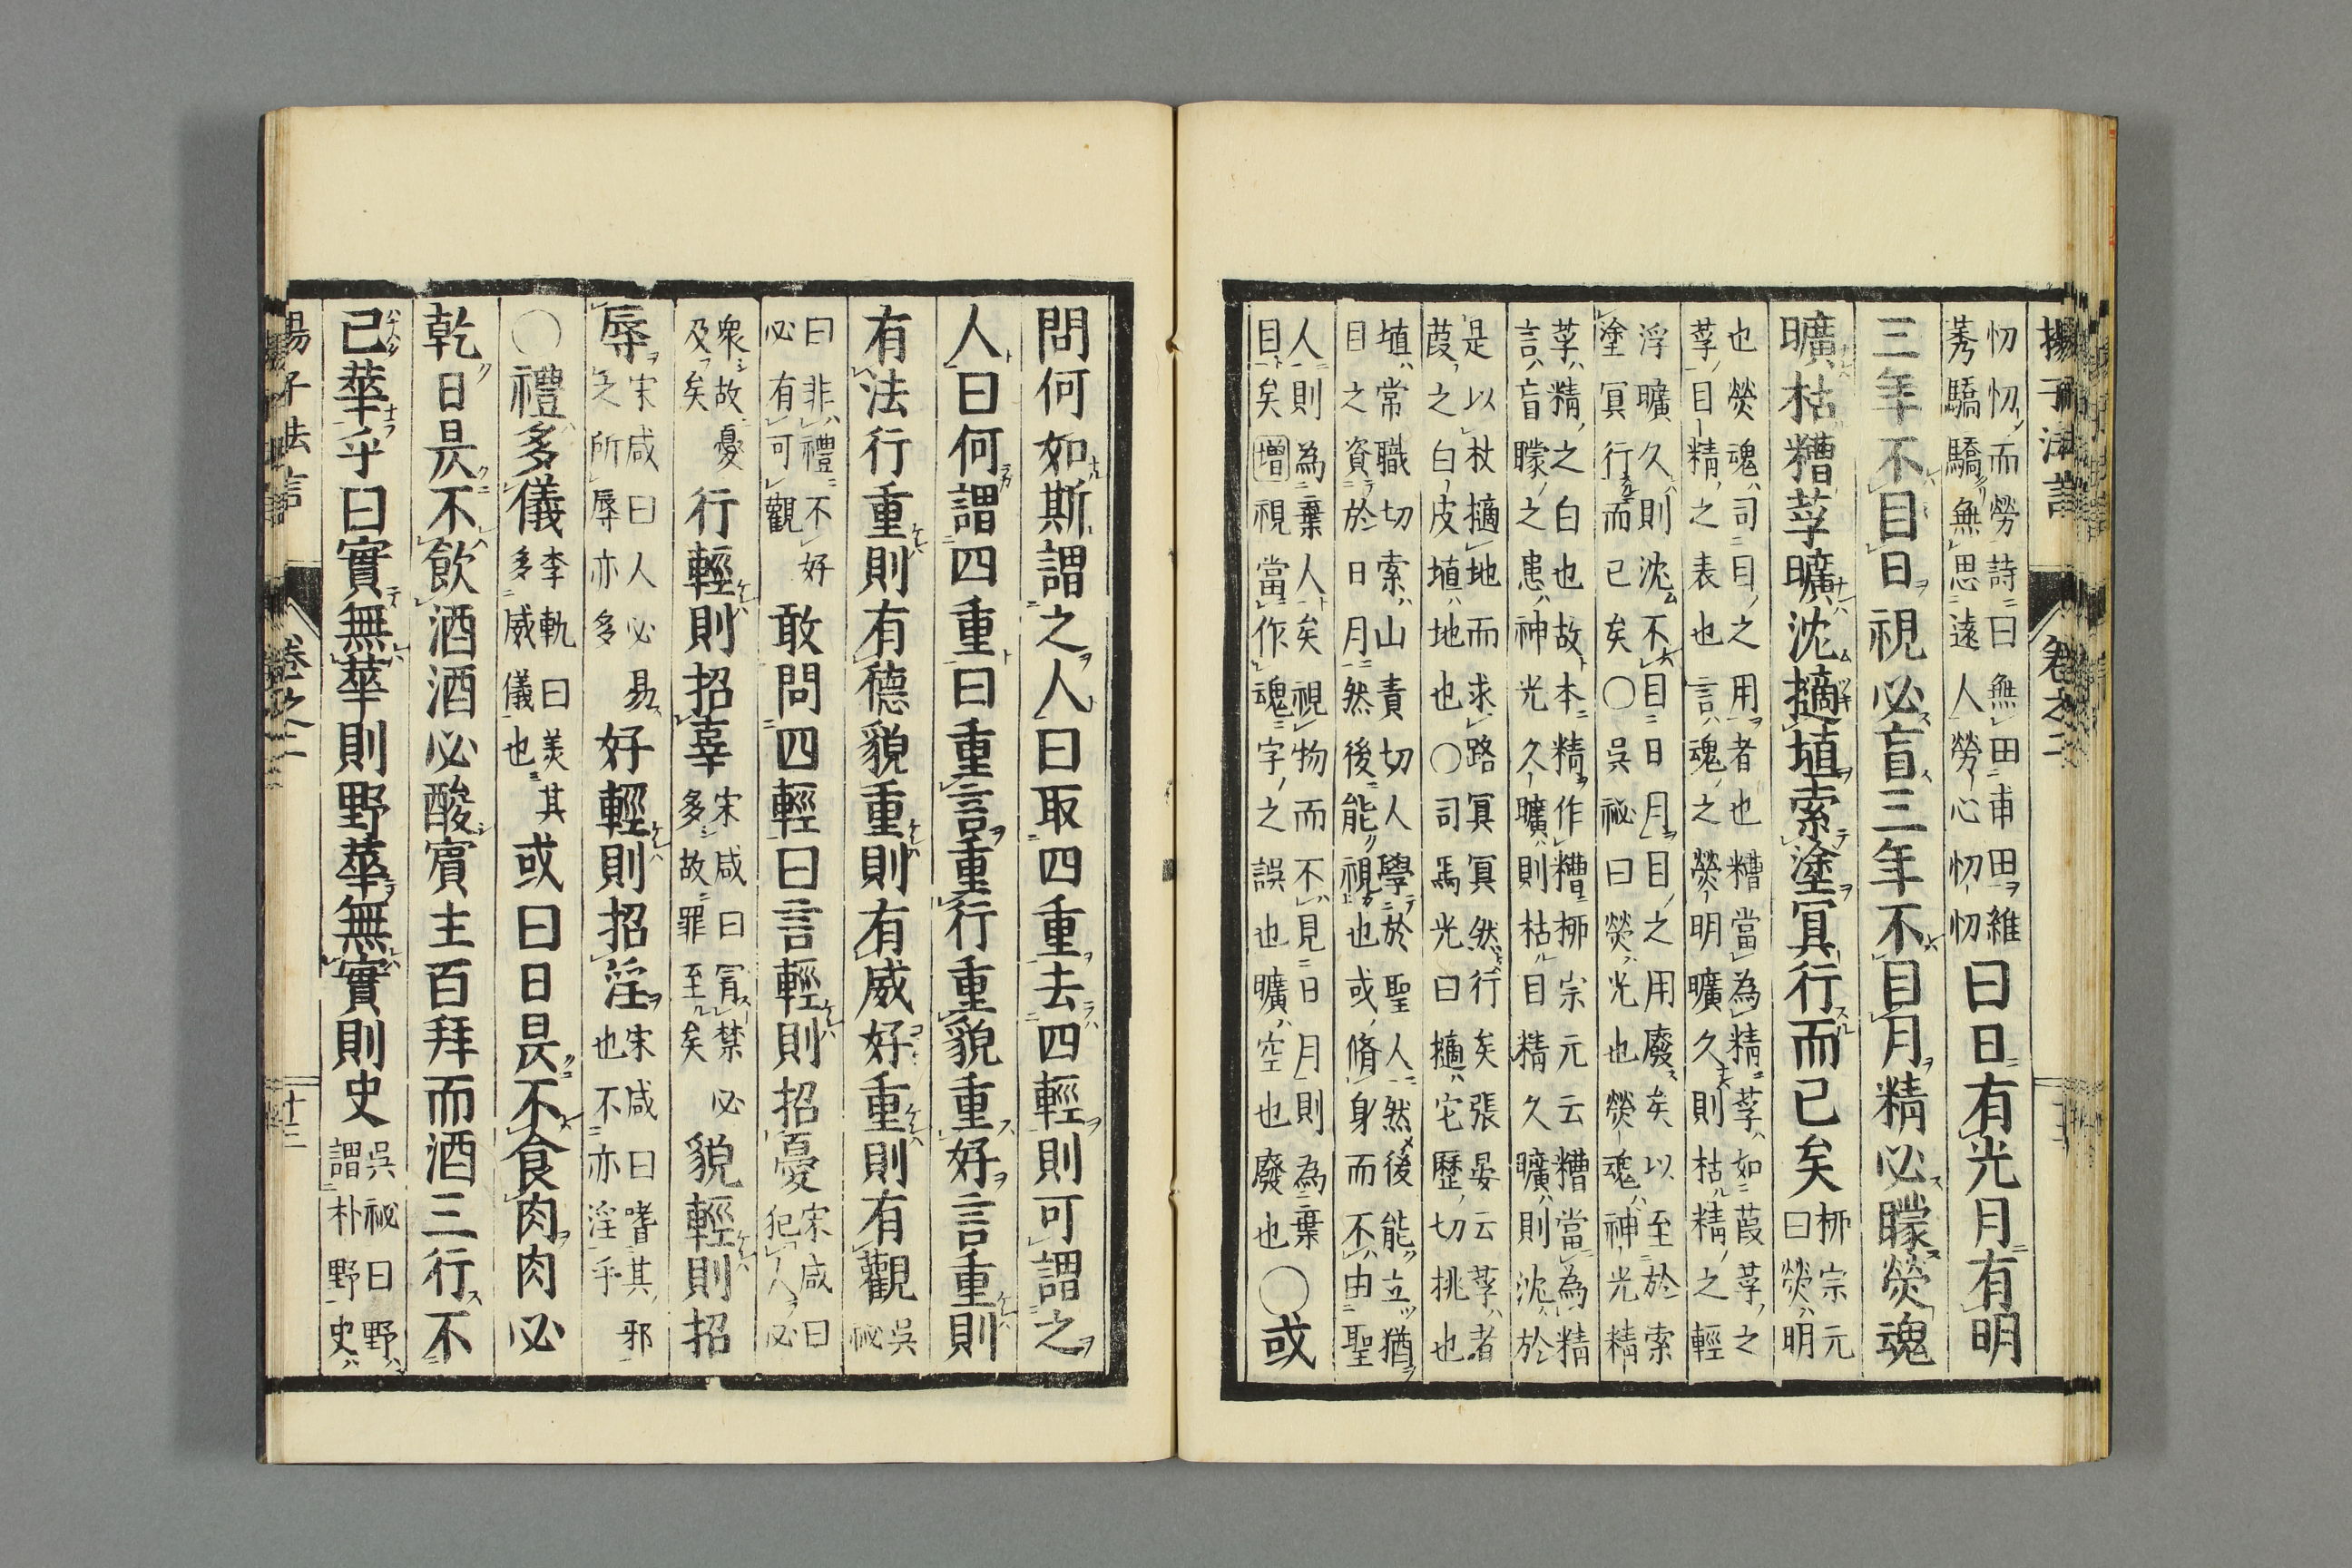 揚子法言　卷之二
忉忉而勞詩曰無田甫田維
莠驕驕無思遠人勞心忉忉
曰日有光月有明
三年不目日視必盲三年不目月精必矇熒魂
曠枯糟莩曠沈擿埴索塗冥行而已矣
柳宗元
曰熒明
也熒魂司目之用者也糟當為精莩如葭莩之
莩目精之表也言魂之熒明曠久則枯精之輕
浮曠久則沈不目日月目之用廢矣以至於索
塗冥行而已矣○吳祕曰熒光也熒魂神光精
莩精之白也故本精作糟柳宗元云糟當為精
言盲矇之患神光久曠則枯目精久曠則沈於
是以杖擿地而求路冥冥然行矣張晏云莩者
葭之白皮埴地也○司馬光曰擿它歷切挑也
埴常職切索山責切人學於聖人然後能立猶
目之資於日月然後能視也或脩身而不由聖
人則為棄人矣視物而不見日月則為棄
目矣增視當作魂字之誤也曠空也廢也
○或
問何如斯謂之人曰取四重去四輕則可謂之
人曰何謂四重曰重言重行重貌重好言重則
有法行重則有德貌重則有威好重則有觀
吳
祕
曰非禮不好
必有可觀
敢問四輕曰言輕則招憂
宋咸曰
犯人必
衆故憂
及矣
行輕則招辜
宋咸曰冒禁必
多故罪至矣
貌輕則招
辱
宋咸曰人必易
之所辱亦多
好輕則招淫
宋咸曰嗜其邪
也不亦淫乎
○禮多儀
李軌曰美其
多威儀也
或曰日昃不食肉肉必
乾日昃不飲酒酒必酸賓主百拜而酒三行不
已華乎曰實無華則野華無實則史
吳祕曰野
謂朴野史
揚子法言　卷之二　十三